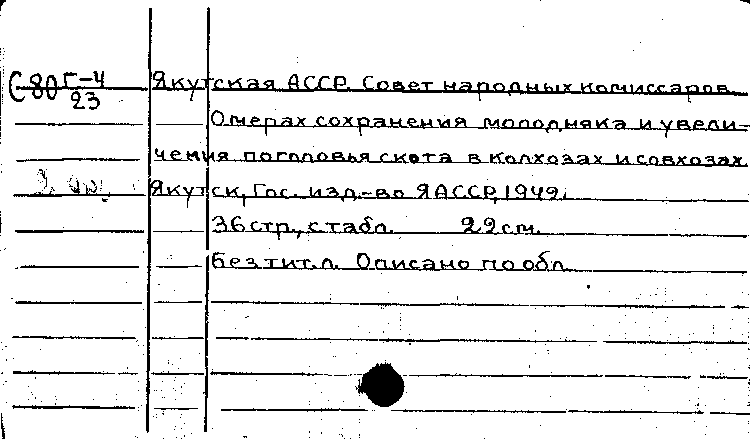 С80 Г-4/23
Якутская АССР. Совет народных комиссаров.
О мерах сохранения молодняка и увели-
чения поголовья скота в колхозах и совхозах
Якутск, Гос. изд-во ЯАССР, 1942.
36 стр., с табл. 22 см.
Без тит. л. Описано по обл.